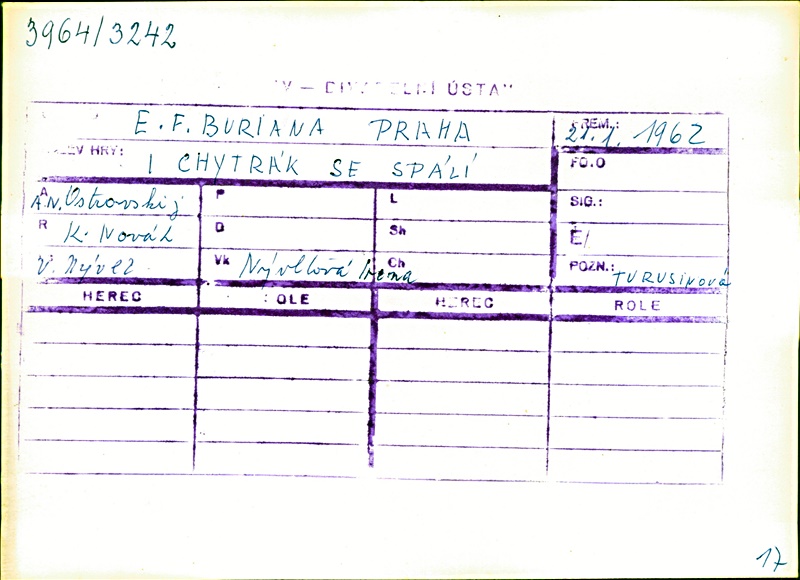 3964/3242
DIVADELNÍ ÚSTAV
E. F. BURIANA PRAHA
PREM.: 1. 1962
HRY: I CHYTRÁK SE SPÁLÍ
FOTO
A A.N. Ostrovskij
P
L
SIG.:
R K. Novák
D
Sh
V. Nývlt
Vk Nývltová Irena
Ch
POZN.: TURUSINOVÁ
HEREC ROLE HEREC ROLE
17